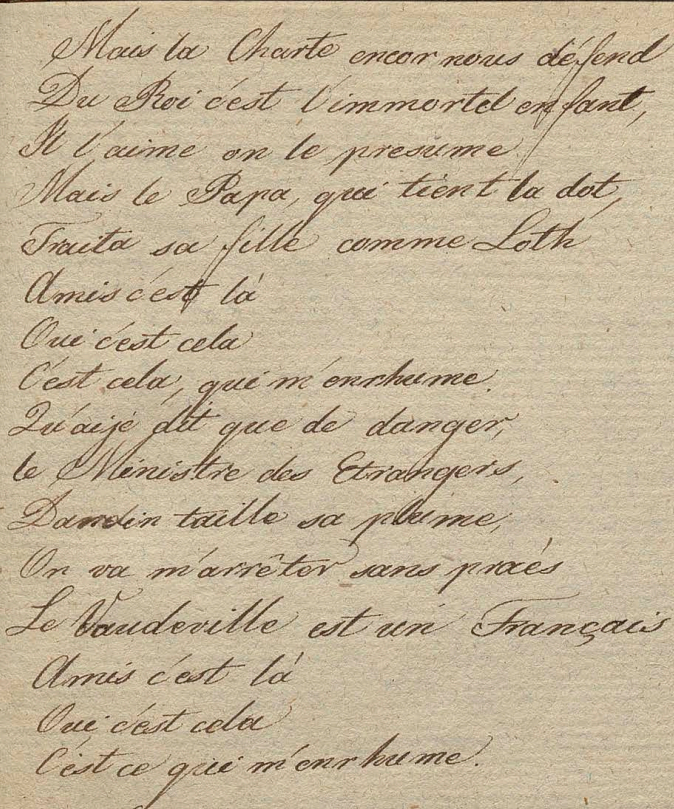 Mais la Charte encor nous défend
Du Roi c'est l'immortel enfant,
Il l'aime on le presume
Mais le Papa, qui tient la dot,
Traita sa fille comme Loth
Amis c'est là
Oui c'est cela
C'est cela, qui m'enrhume.
Qu'aije dit que de danger,
le Ministre des Etrangers,
Dandin taille sa plume,
On va m'arrêter sans procès
Le Vaudeville est un Français
Amis c'est là
Oui c'est cela
C'est ce qui m'enrhume.